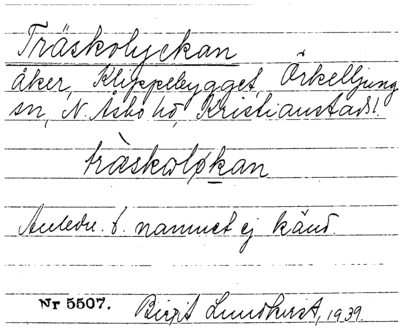 Träskolyckan
åker, Klippebygget, Örkelljung
sn, N. Åsbo hd, Kristianstads l.
träskolykan
Anledn. t. namnet ej känd.
Nr 5507. Birgit Lundkvist, 1939.